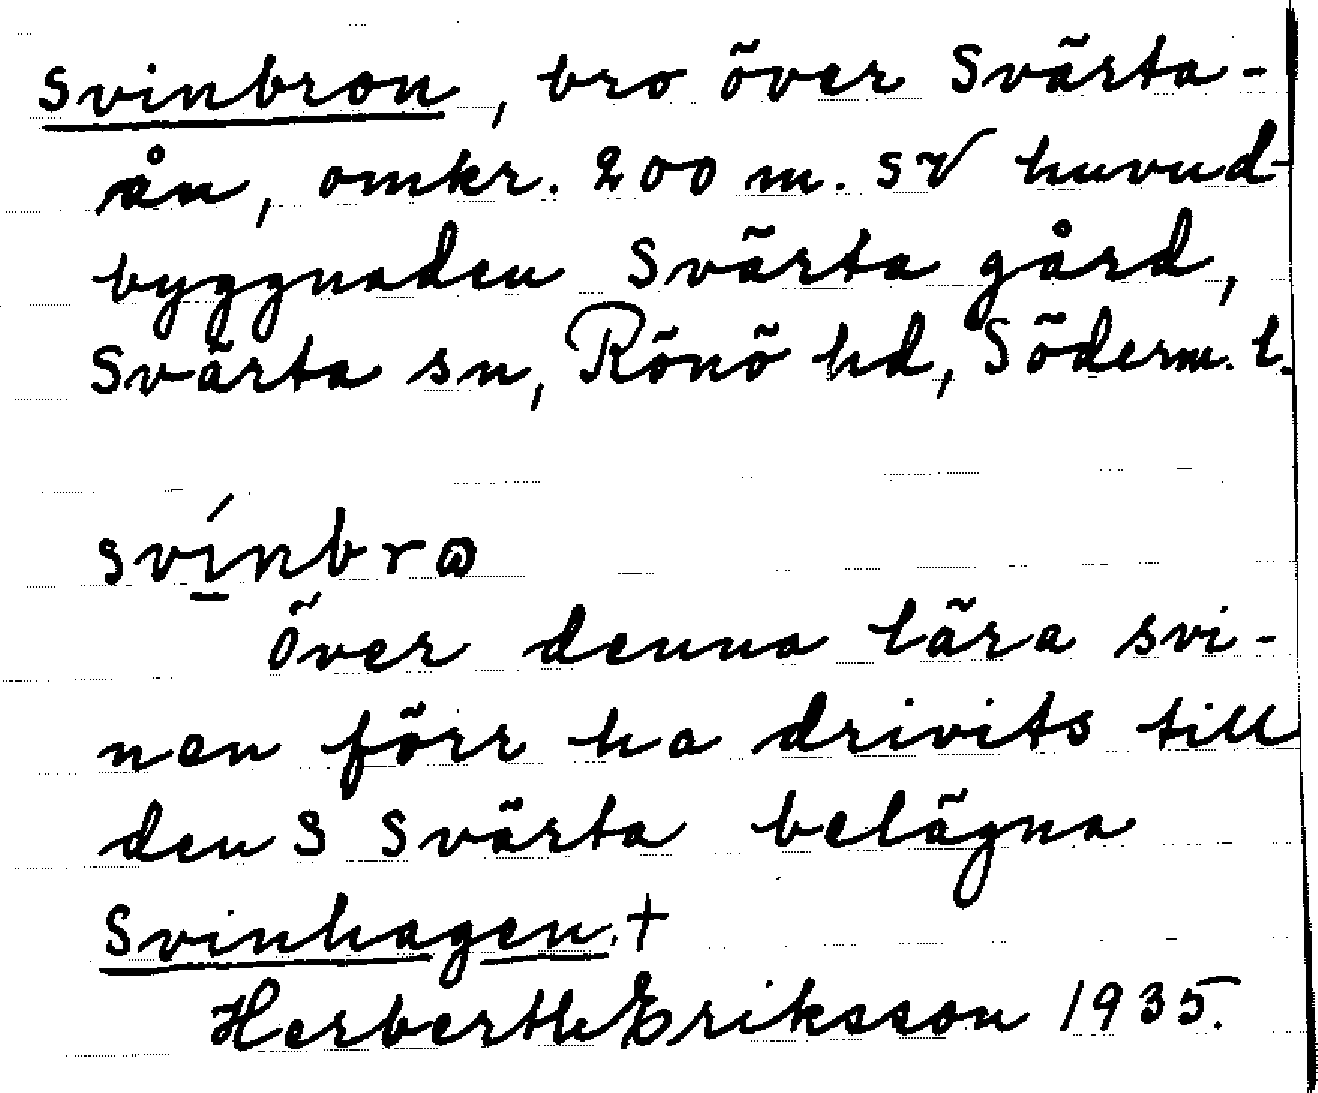 Svinbron, bro över Svärta-
ån, omkr. 200 m. SV huvud-
byggnaden Svärta gård,
Svärta sn, Rönö hd, Söderm. l.
svínbrω
Över denna lära svi-
nen förr ha drivits till
den S Svärta belägna
Svinhagen.+
Herberth Eriksson 1935.